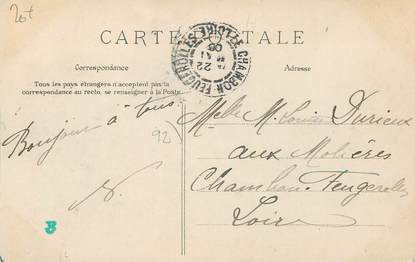 CARTE POSTALE
Correspondance
Adresse
Tous les pays étrangers n'acceptent pas la
correspondance au recto, se renseigner à la Poste
Bonjour à tous.
Melle M. Louise Durieux
aux Molières
Chambon-Feugerolles
Loire
CHAMBON-FEUGEROLLES
LOIRE
22